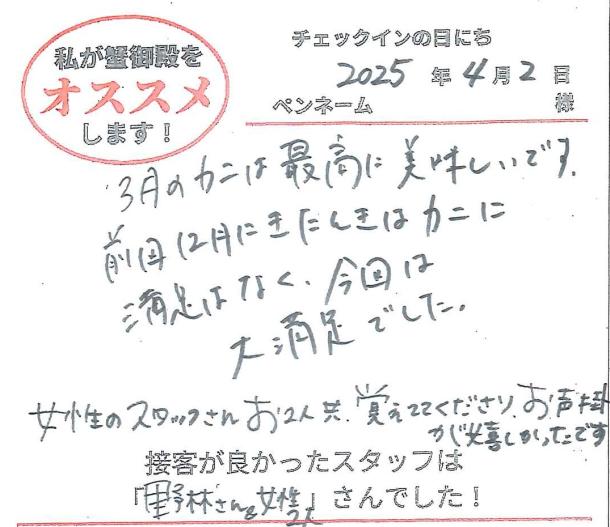 私が蟹御殿を
オススメ
します！
チェックインの日にち
2025年4月2日
ペンネーム 様
3月のカニは最高に美味しいです。
前回12月にきたときはカニに
満足はなく、今回は
大満足でした。
女性のスタッフさんお2人共、覚えててくださり、お声掛
が嬉しかったです
接客が良かったスタッフは
「野林さん&女性2人」さんでした！